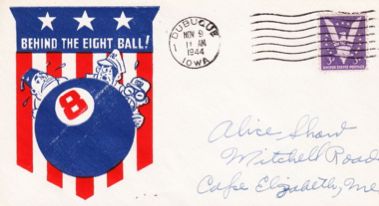 BEHIND THE EIGHT BALL!
8
DUBUQUE
1
NOV 9
11 AM
1944
IOWA
3¢ 3¢
UNITED STATES POSTAGE
Alice Shaw
Mitchell Road
Cape Elizabeth, Me